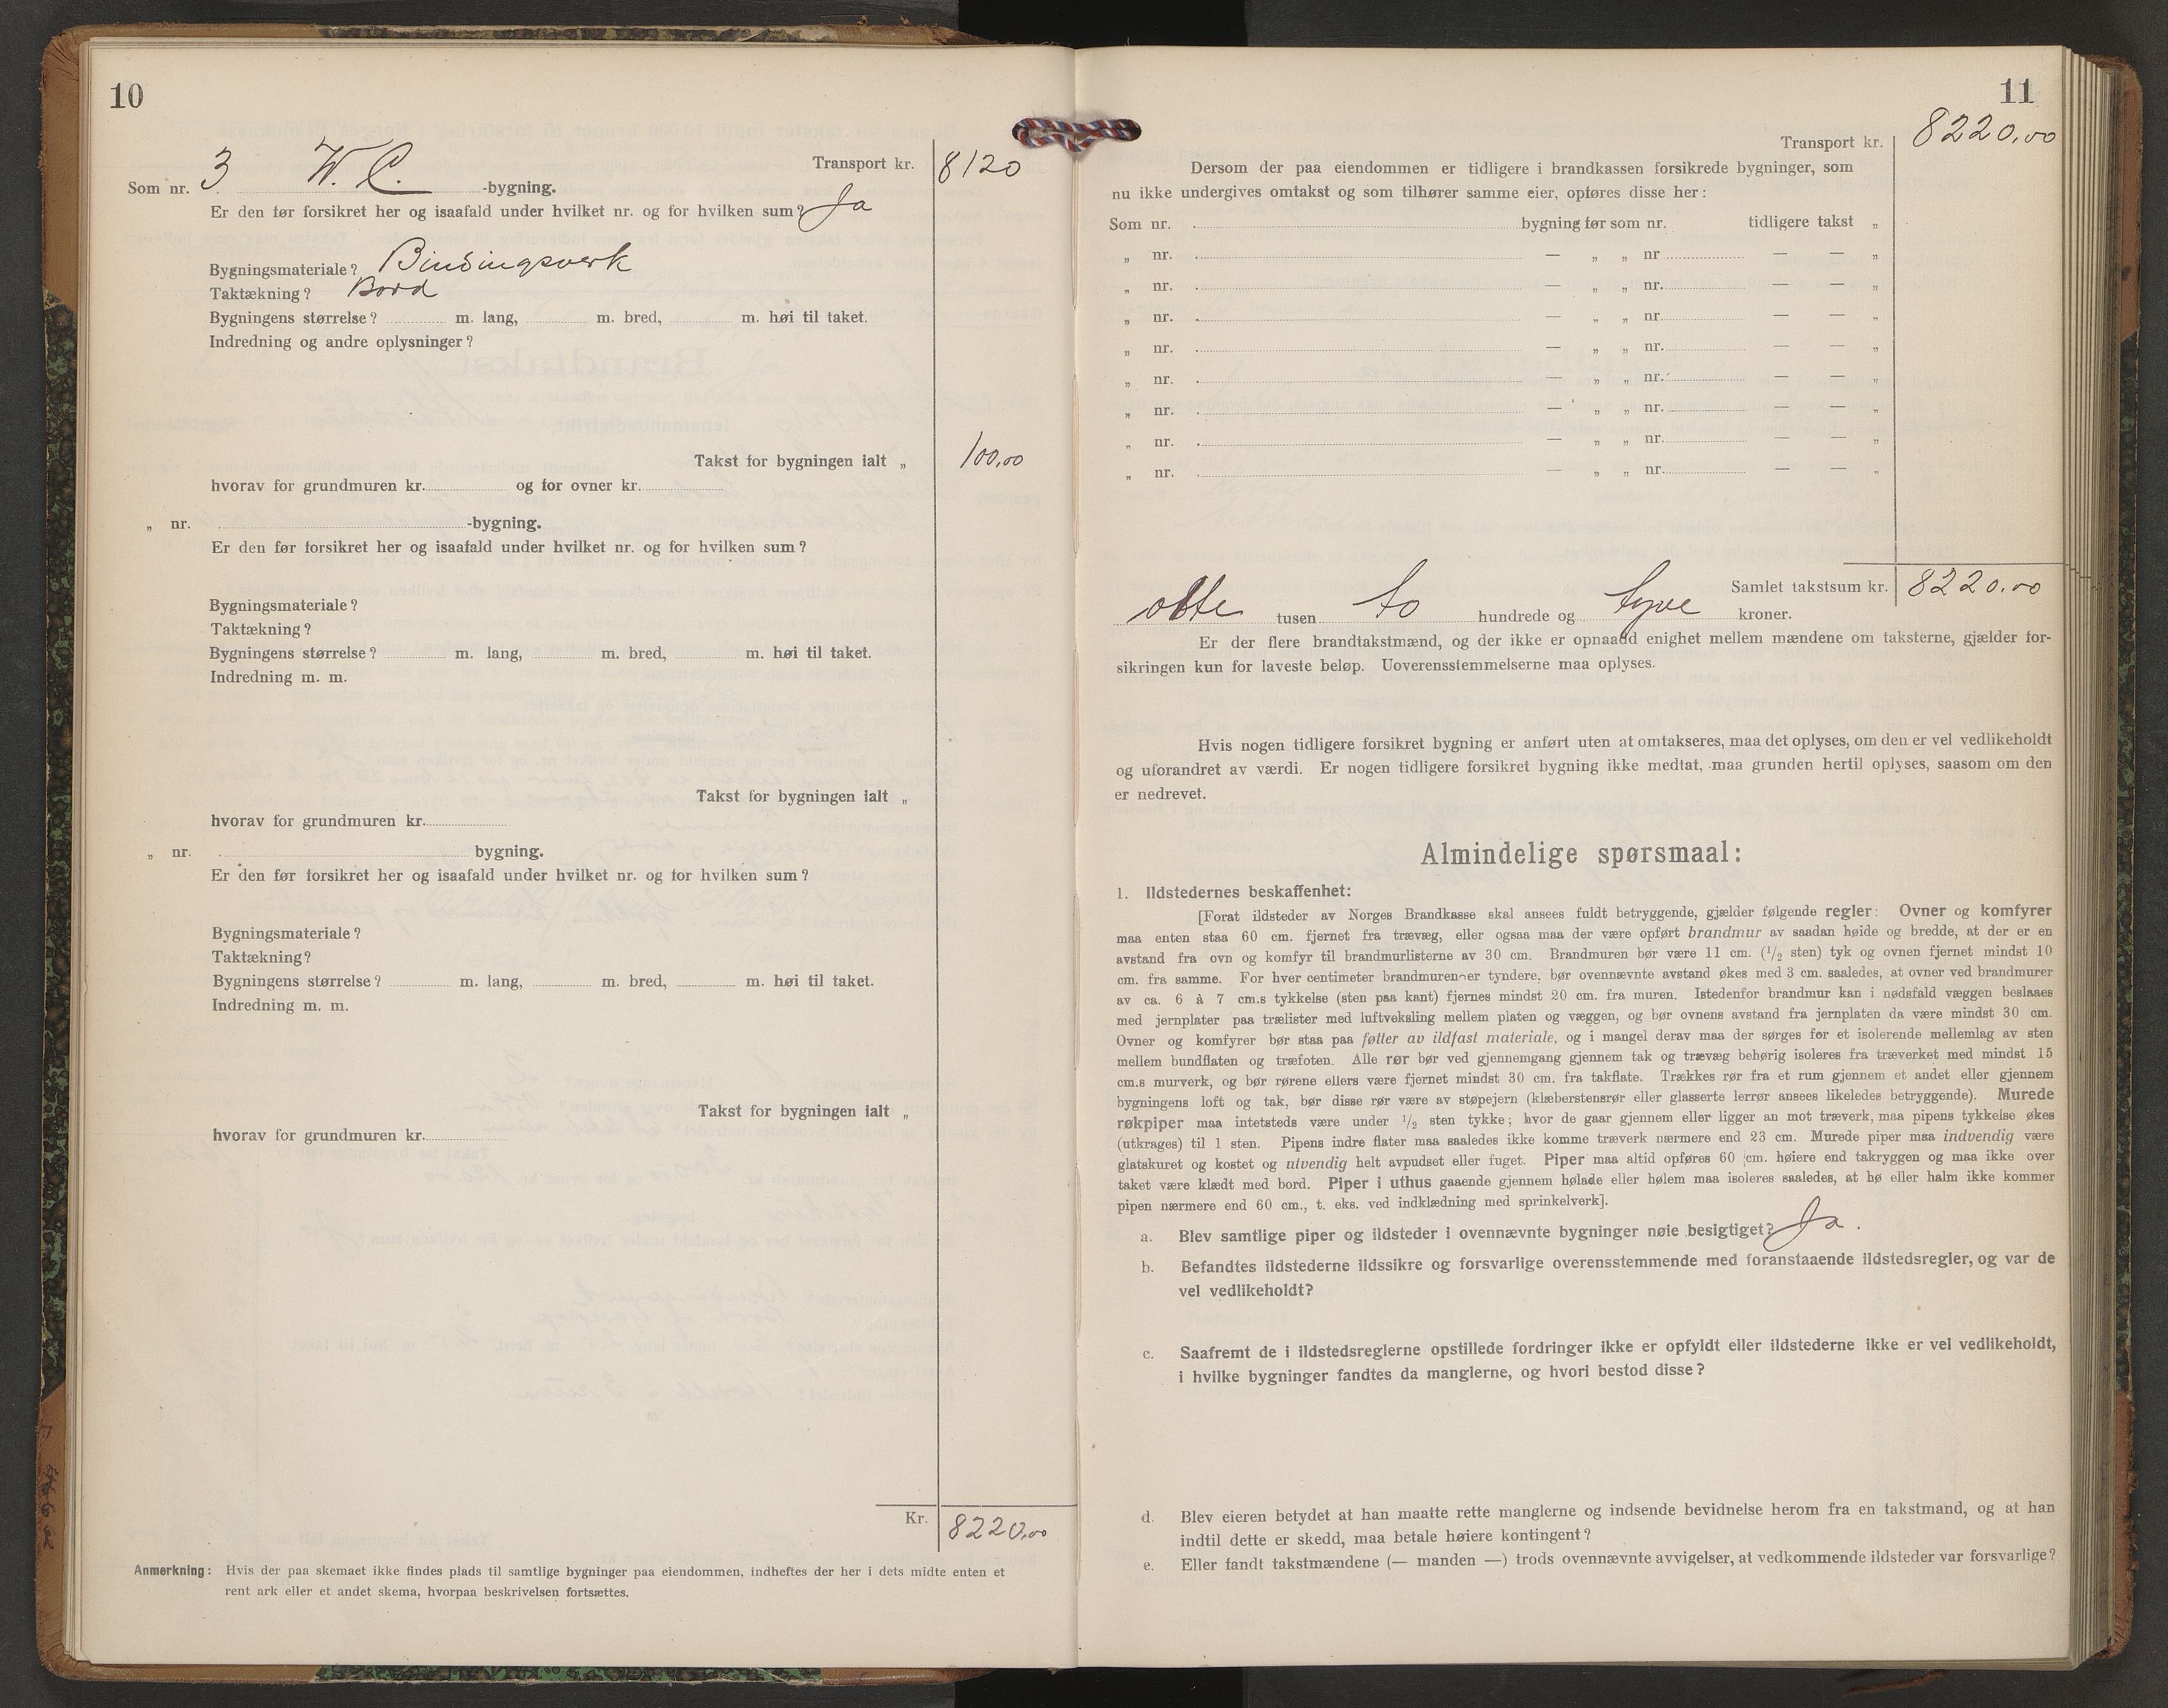 10
Transport kr. 8120
Som nr. 3 W. C. -bygning.
Er den før forsikret her og isaafald under hvilket nr. og for hvilken sum? Ja
Bygningsmateriale? Bindingsverk
Taktækning? Bord
Bygningens størrelse? m. lang, m. bred, m. høi til taket.
Indredning og andre oplysninger?
Takst for bygningen ialt „ 100,00
hvorav for grundmuren kr. og for ovner kr.
„ nr. -bygning.
Er den før forsikret her og isaafald under hvilket nr. og for hvilken sum?
Bygningsmateriale?
Taktækning?
Bygningens størrelse? m. lang, m. bred, m. høi til taket.
Indredning m. m.
Takst for bygningen ialt „
hvorav for grundmuren kr.
„ nr. bygning.
Er den før forsikret her og isaafald under hvilket nr. og for hvilken sum?
Bygningsmateriale?
Taktækning?
Bygningens størrelse? m. lang, m. bred, m. høi til taket.
Indredning m. m.
Takst for bygningen ialt „
hvorav for grundmuren kr.
Kr. 8220,00
Anmerkning: Hvis der paa skemaet ikke findes plads til samtlige bygninger paa eiendommen, indheftes der her i dets midte enten et
rent ark eller et andet skema, hvorpaa beskrivelsen fortsættes.
11
Transport kr. 8220,00
Dersom der paa eiendommen er tidligere i brandkassen forsikrede bygninger, som
nu ikke undergives omtakst og som tilhører samme eier, opføres disse her:
Som nr. bygning før som nr. tidligere takst „
„ nr. — „ „ nr — — „
„ nr. — „ „ nr. — — „
„ nr. — „ „ nr. — — „
„ nr. — „ „ nr. — — „
„ nr. — „ „ nr. — — „
„ nr. — „ „ nr. — — „
„ nr. — „ „ nr. — — „
„ nr. — „ „ nr. — — „
Samlet takstsum kr. 8220,00
otte tusen to hundrede og tyve kroner.
Er der flere brandtakstmænd, og der ikke er opnaadd enighet mellem mændene om taksterne, gjælder for-
sikringen kun for laveste beløp. Uoverensstemmelserne maa oplyses.
Hvis nogen tidligere forsikret bygning er anført uten at omtakseres, maa det oplyses, om den er vel vedlikeholdt
og uforandret av værdi. Er nogen tidligere forsikret bygning ikke medtat, maa grunden hertil oplyses, saasom om den
er nedrevet.
Almindelige spørsmaal:
1. Ildstedernes beskaffenhet:
[Forat ildsteder av Norges Brandkasse skal ansees fuldt betryggende, gjælder følgende regler: Ovner og komfyrer
maa enten staa 60 cm. fjernet fra trævæg, eller ogsaa maa der være opført brandmur av saadan høide og bredde, at der er en
avstand fra ovn og komfyr til brandmurlisterne av 30 cm. Brandmuren bør være 11 cm. (1/2 sten) tyk og ovnen fjernet mindst 10
cm. fra samme. For hver centimeter brandmuren er tyndere, bør ovennævnte avstand økes med 3 cm. saaledes, at ovner ved brandmurer
av ca. 6 à 7 cm.s tykkelse (sten paa kant) fjernes mindst 20 cm. fra muren. Istedenfor brandmur kan i nødsfald væggen beslaaes
med jernplater paa trælister med luftveksling mellem platen og væggen, og bør ovnens avstand fra jernplaten da være mindst 30 cm.
Ovner og komfyrer bør staa paa føtter av ildfast materiale, og i mangel derav maa der sørges for et isolerende mellemlag av sten
mellem bundflaten og træfoten. Alle rør bør ved gjennemgang gjennem tak og trævæg behørig isoleres fra træverket med mindst 15
cm.s murverk, og bør rørene ellers være fjernet mindst 30 cm. fra takflate. Trækkes rør fra et rum gjennem et andet eller gjennem
bygningens loft og tak, bør disse rør være av støpejern (klæberstensrør eller glasserte lerrør ansees likeledes betryggende). Murede
røkpiper maa intetsteds være under 1/2 sten tykke; hvor de gaar gjennem eller ligger an mot træverk, maa pipens tykkelse økes
(utkrages) til 1 sten. Pipens indre flater maa saaledes ikke komme træverk nærmere end 23 cm. Murede piper maa indvendig være
glatskuret og kostet og utvendig helt avpudset eller fuget. Piper maa altid opføres 60 cm. høiere end takryggen og maa ikke over
taket være klædt med bord. Piper i uthus gaaende gjennem hølade eller hølem maa isoleres saaledes, at hø eller halm ikke kommer
pipen nærmere end 60 cm., t. eks. ved indklædning med sprinkelverk].
a. Blev samtlige piper og ildsteder i ovennævnte bygninger nøie besigtiget? Ja.
b. Befandtes ildstederne ildssikre og forsvarlige overensstemmende med foranstaaende ildstedsregler, og var de
vel vedlikeholdt?
c. Saafremt de i ildstedsreglerne opstillede fordringer ikke er opfyldt eller ildstederne ikke er vel vedlikeholdt,
i hvilke bygninger fandtes da manglerne, og hvori bestod disse?
d. Blev eieren betydet at han maatte rette manglerne og indsende bevidnelse herom fra en takstmand, og at han
indtil dette er skedd, maa betale høiere kontingent?
e. Eller fandt takstmændene (— manden —) trods ovennævnte avvigelser, at vedkommende ildsteder var forsvarlige?